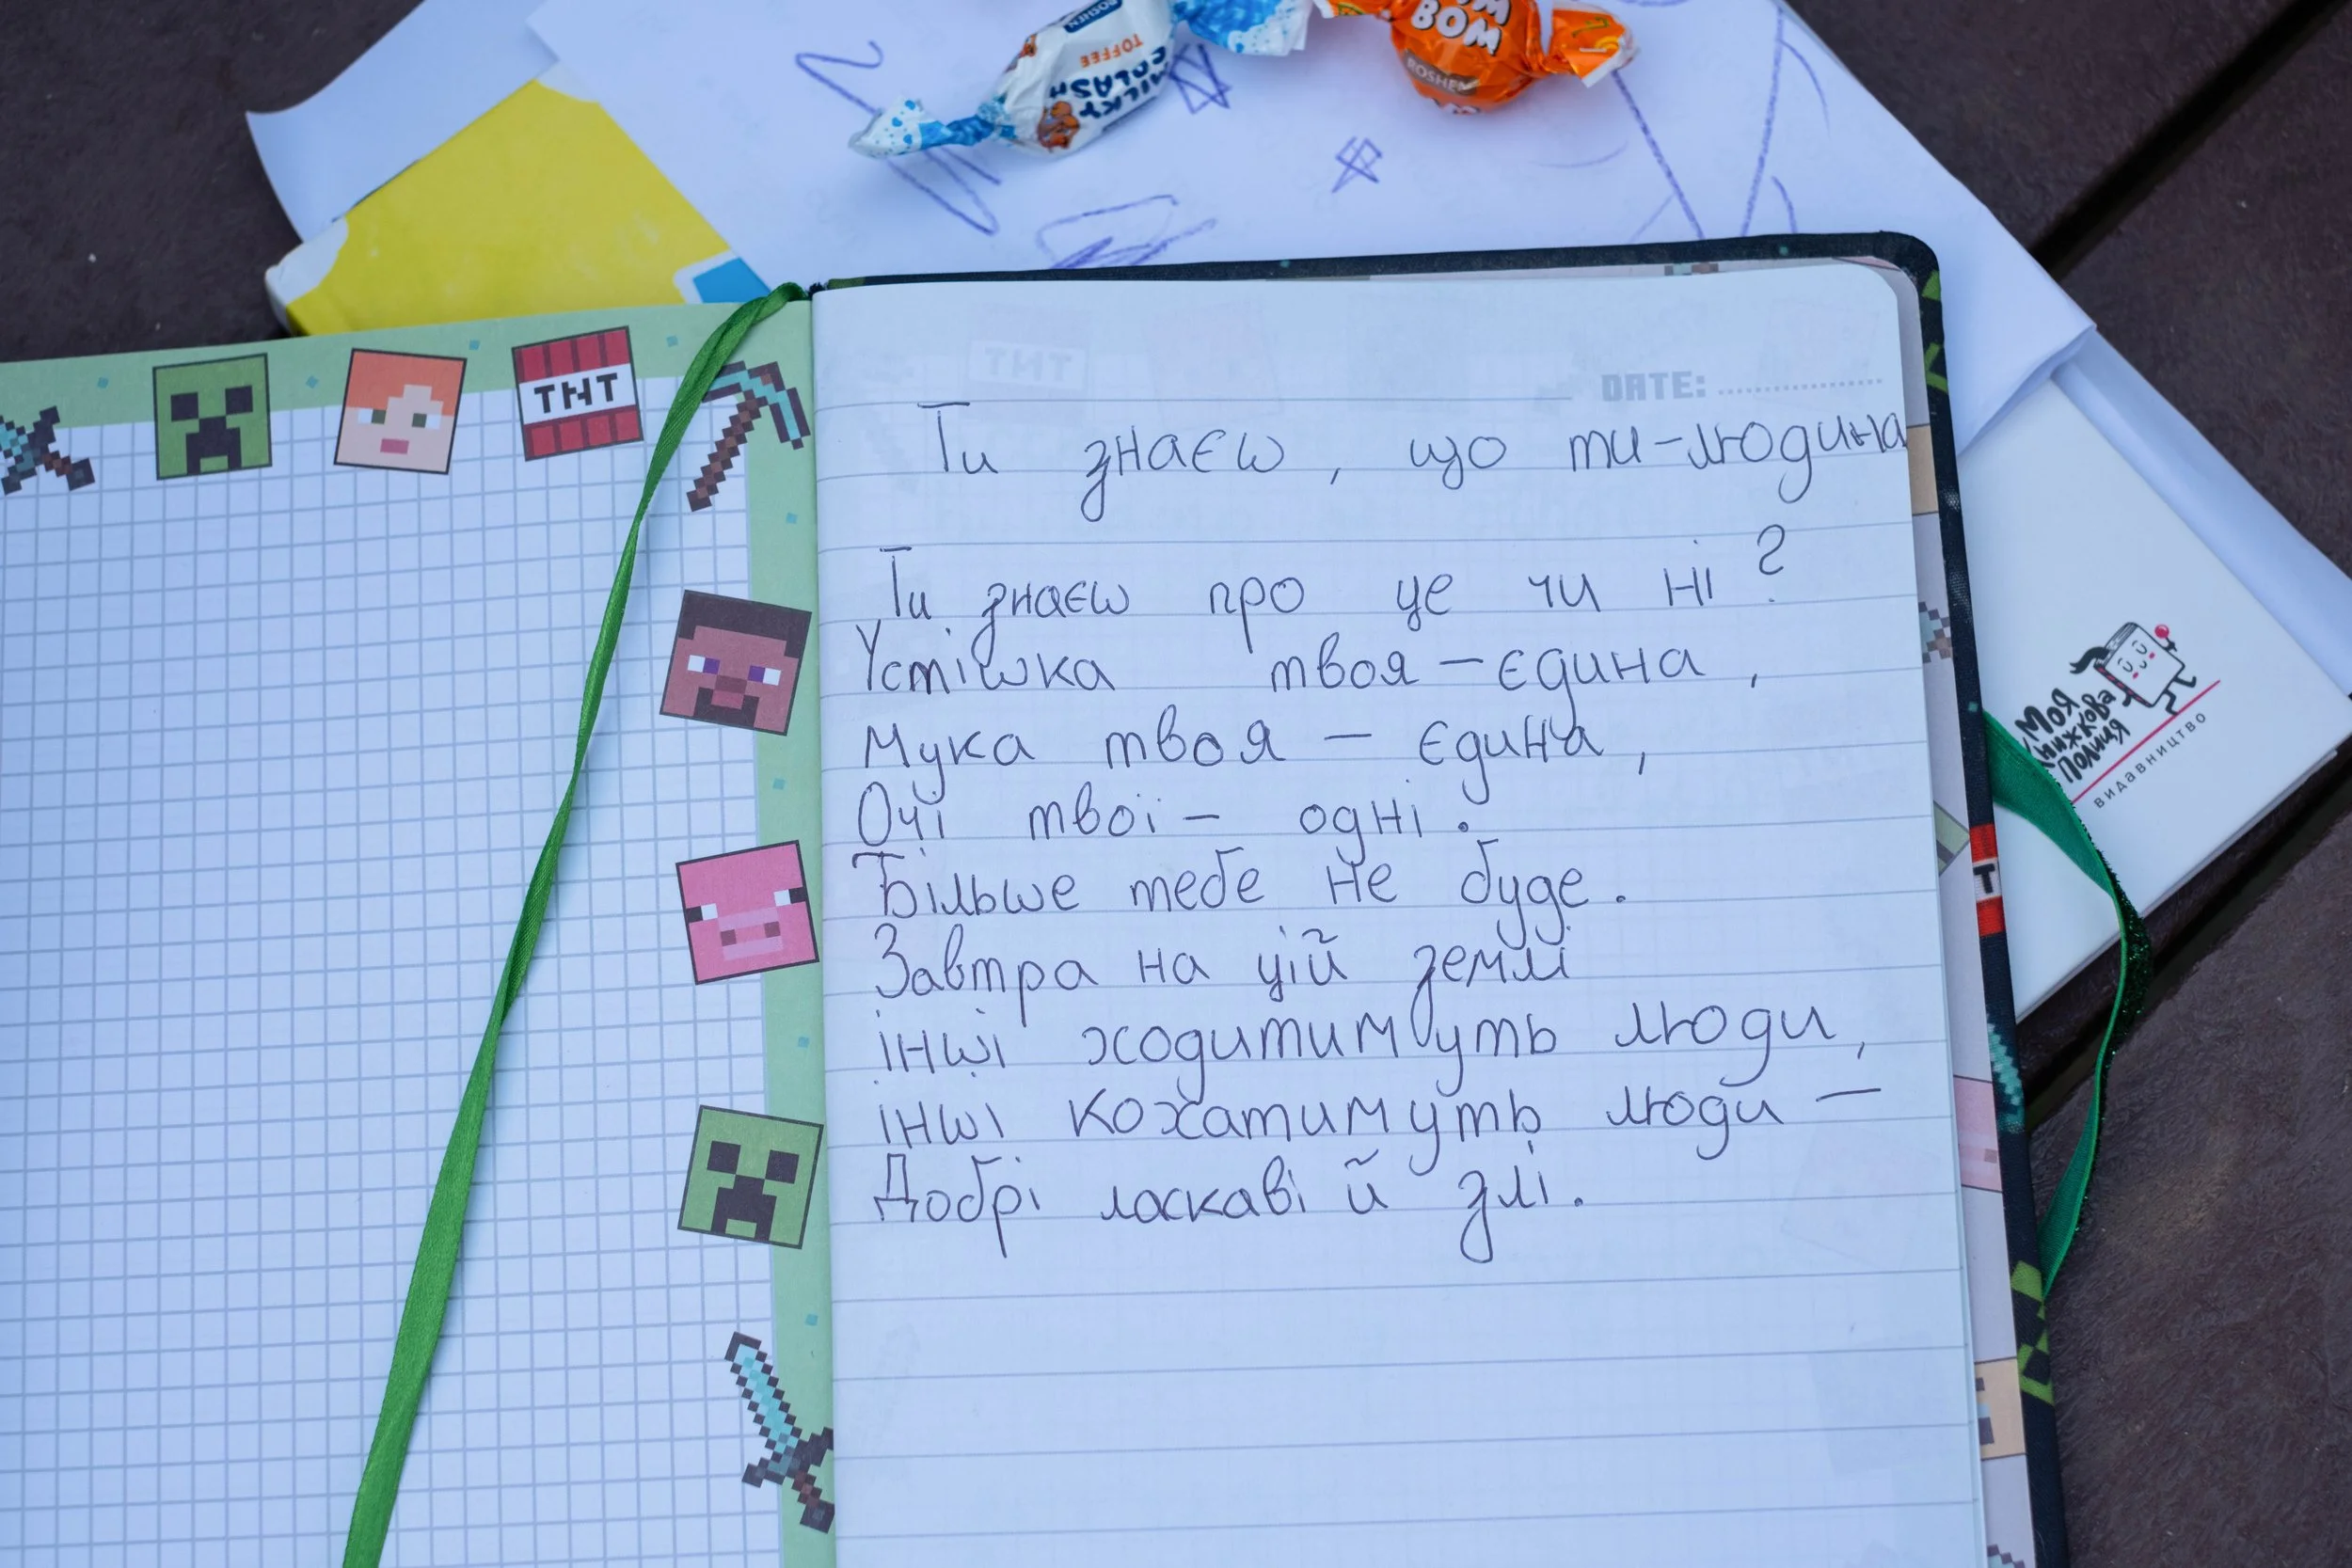 ROSHEN
TOFFEE
MILKY
SPLASH
BOM
ROSHEN
TNT
DATE:
Ти знаєш, що ти-людина
Ти знаєш про це чи ні?
Устішка твоя - єдина,
Мука твоя - єдина,
Очі твої - одні.
Більше тебе не буде.
Завтра на цій землі
інші ходитимуть люди,
інші кохатимуть люди -
Добрі ласкаві й злі.
Моя
книжкова
полиця
видавництво